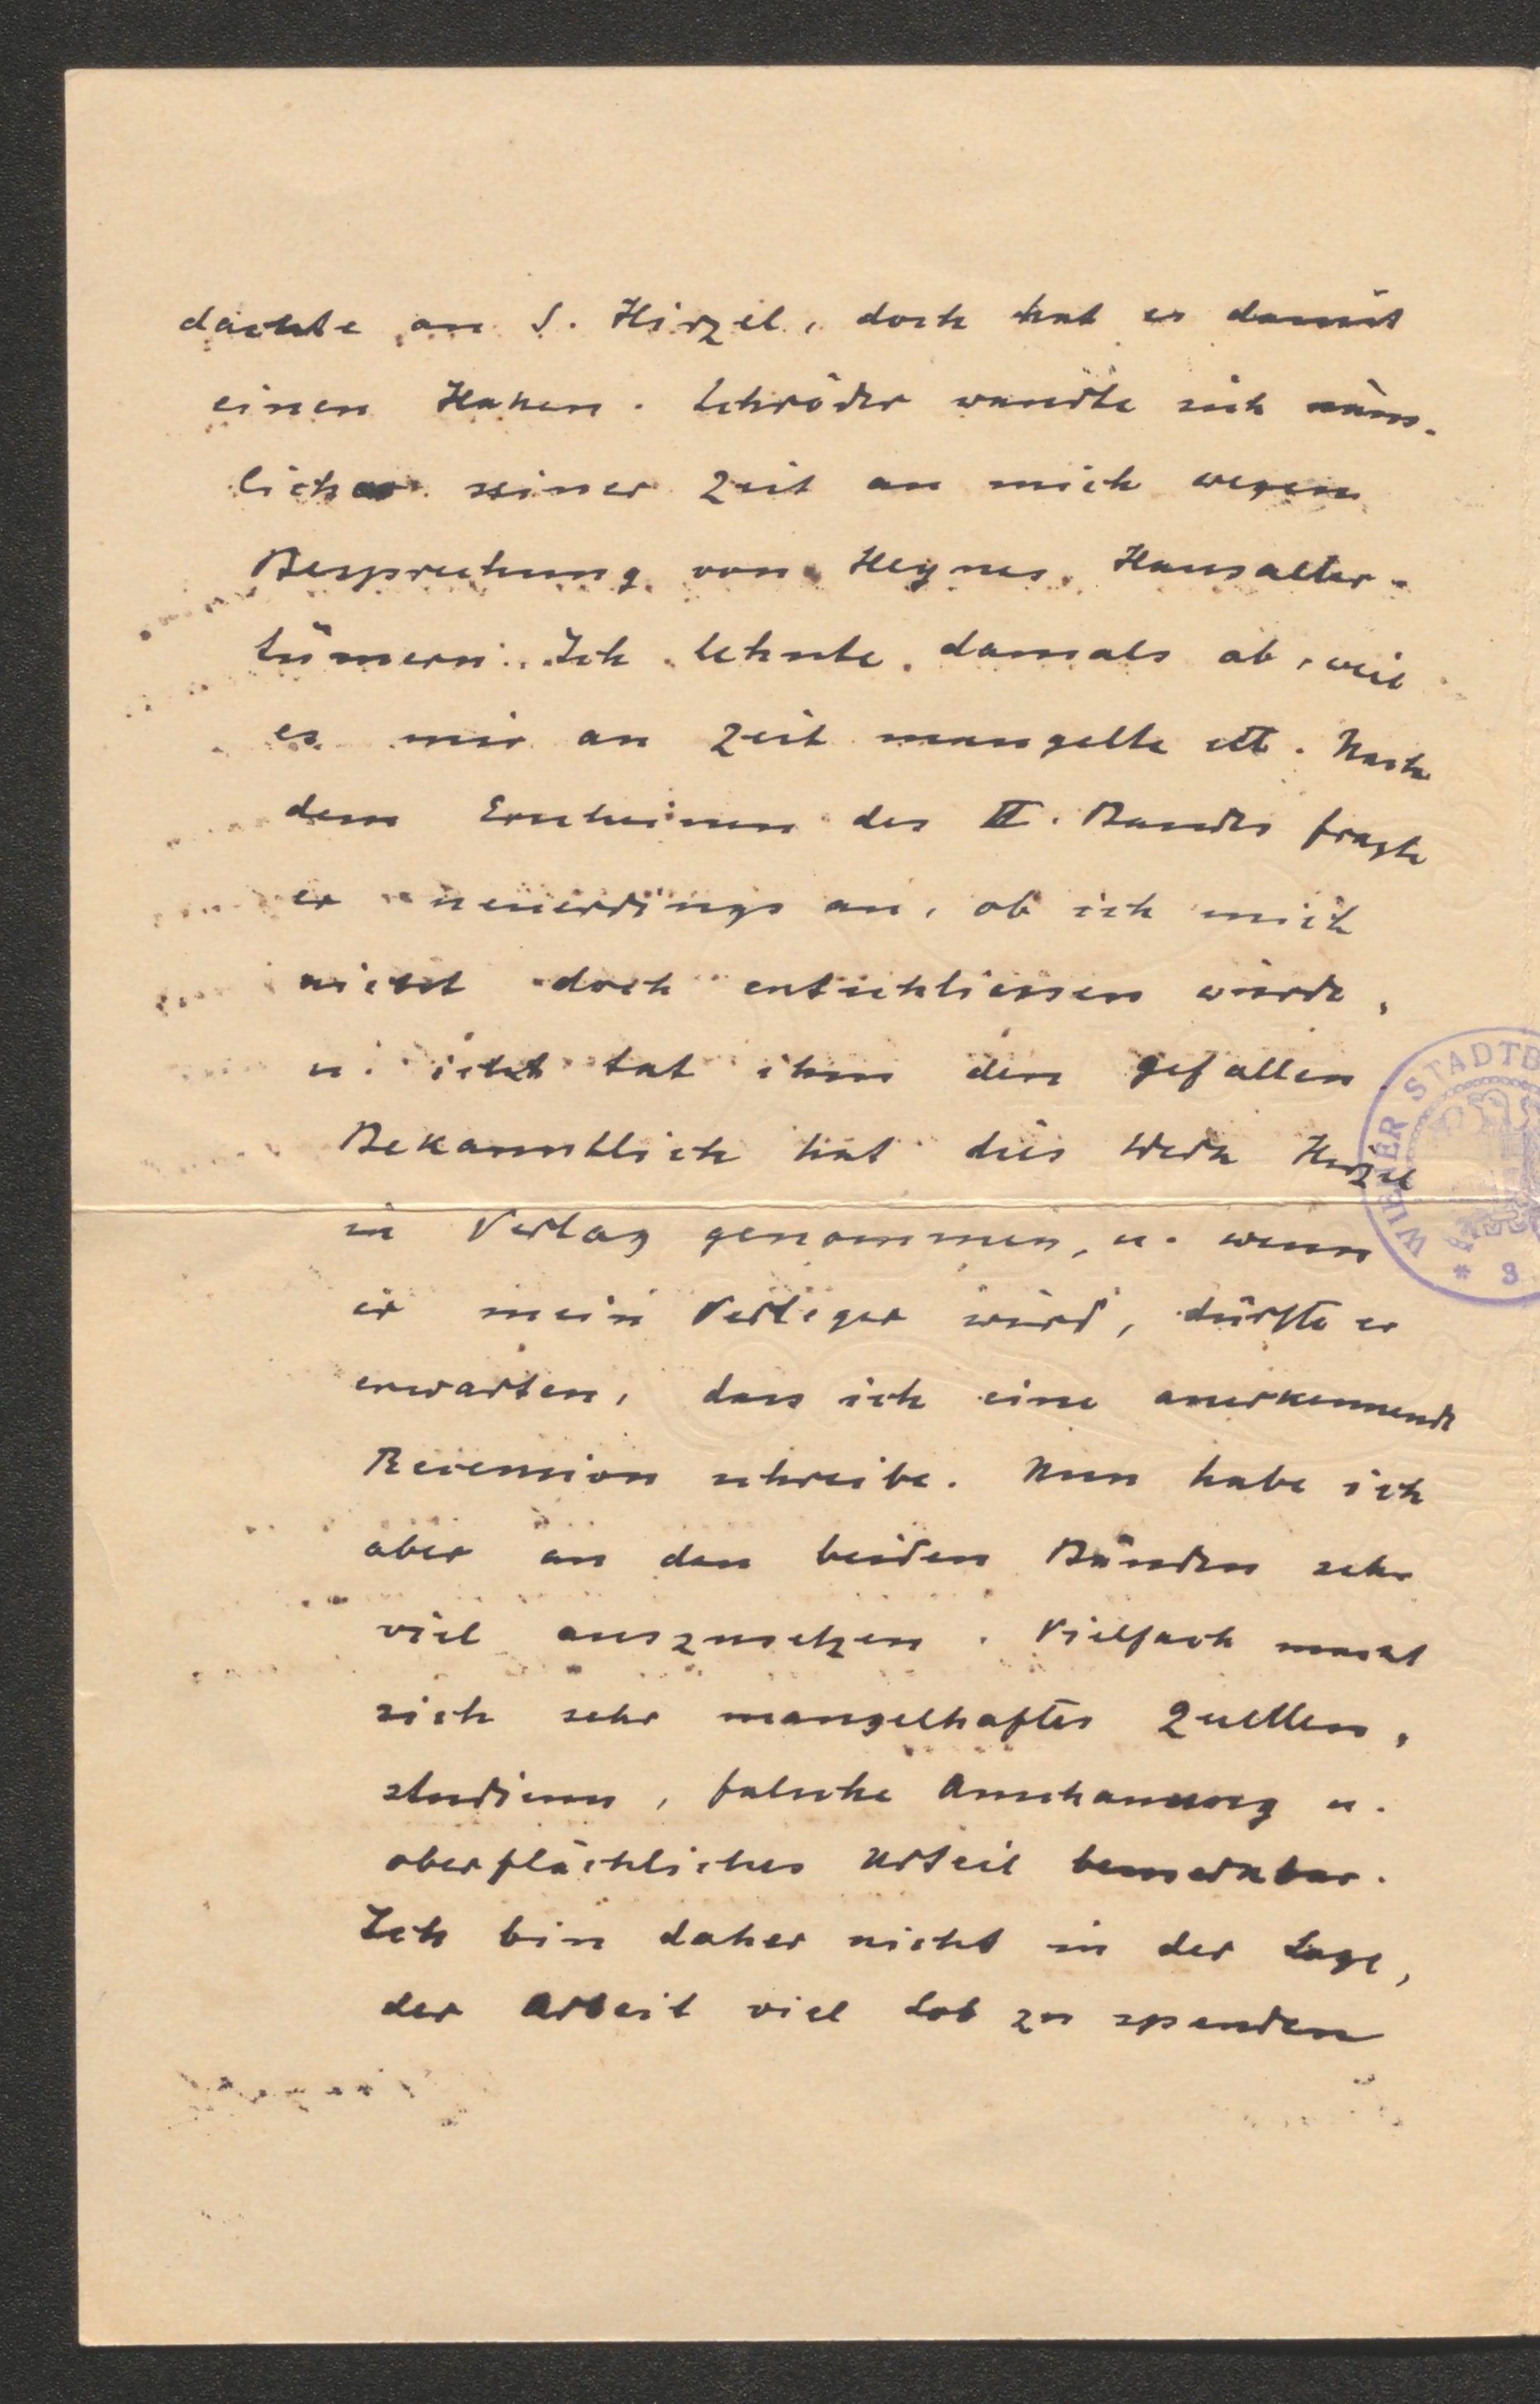 dachte an S. Hirzel, doch hat es damit
einen Haken. Schröder wandte sich näm-
lich seiner Zeit an mich wegen
Besprechung von Heynes Hausalter-
tümern. Ich lehnte damals ab, weil
es mir an Zeit mangelte etc. Nach
dem Erscheinen des II. Bandes fragte
er neuerdings an, ob ich mich
nicht doch entschliessen würde,
u. ich tat ihm den Gefallen.
Bekanntlich hat dies Werk Hirzel
in Verlag genommen, u. wenn
er mein Verleger wird, dürfte er
erwarten, dass ich eine anerkennende
Recension schreibe. Nun habe ich
aber an den beiden Bänden sehr
viel auszusetzen. Vielfach macht
sich sehr mangelhaftes Quellen-
studium, falsche Anschauung u.
oberflächliches Urteil bemerkbar.
Ich bin daher nicht in der Lage,
der Arbeit viel Lob zu spenden
WIENER STADTB
* 3